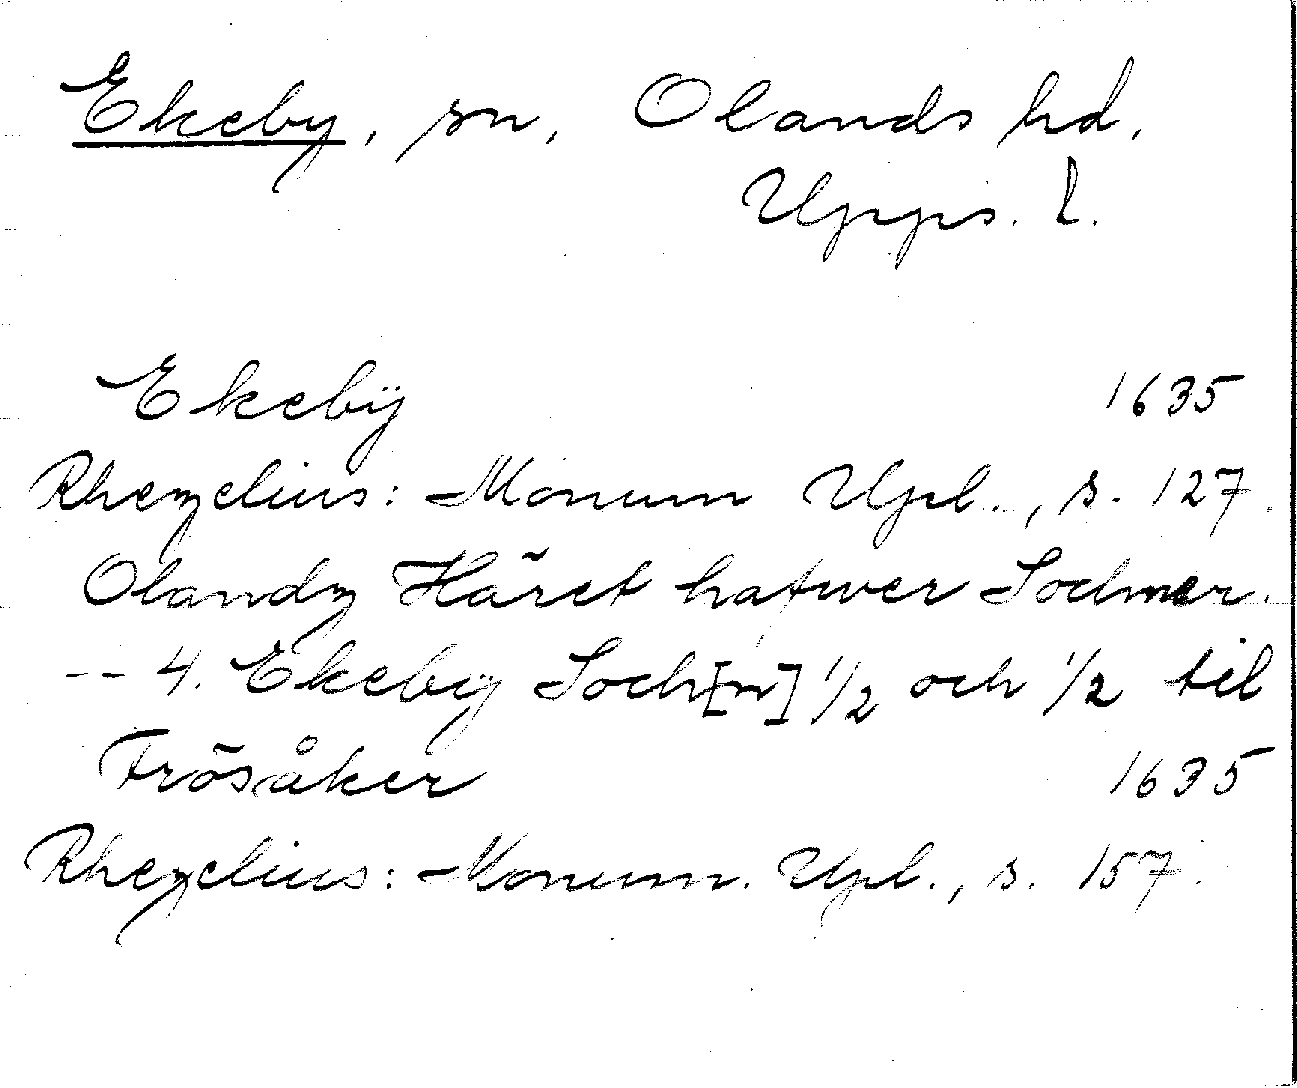 Ekeby, sn, Olands hd,
Upps. l.
Ekebÿ 1635
Rhezelius: Monum Upl., s. 127.
Olandz Häret hafwer Sochner.
-- 4. Ekeby Soch[n] 1/2 och 1/2 til
Frösåker 1635
Rhezelius: Monum. Upl., s. 157.